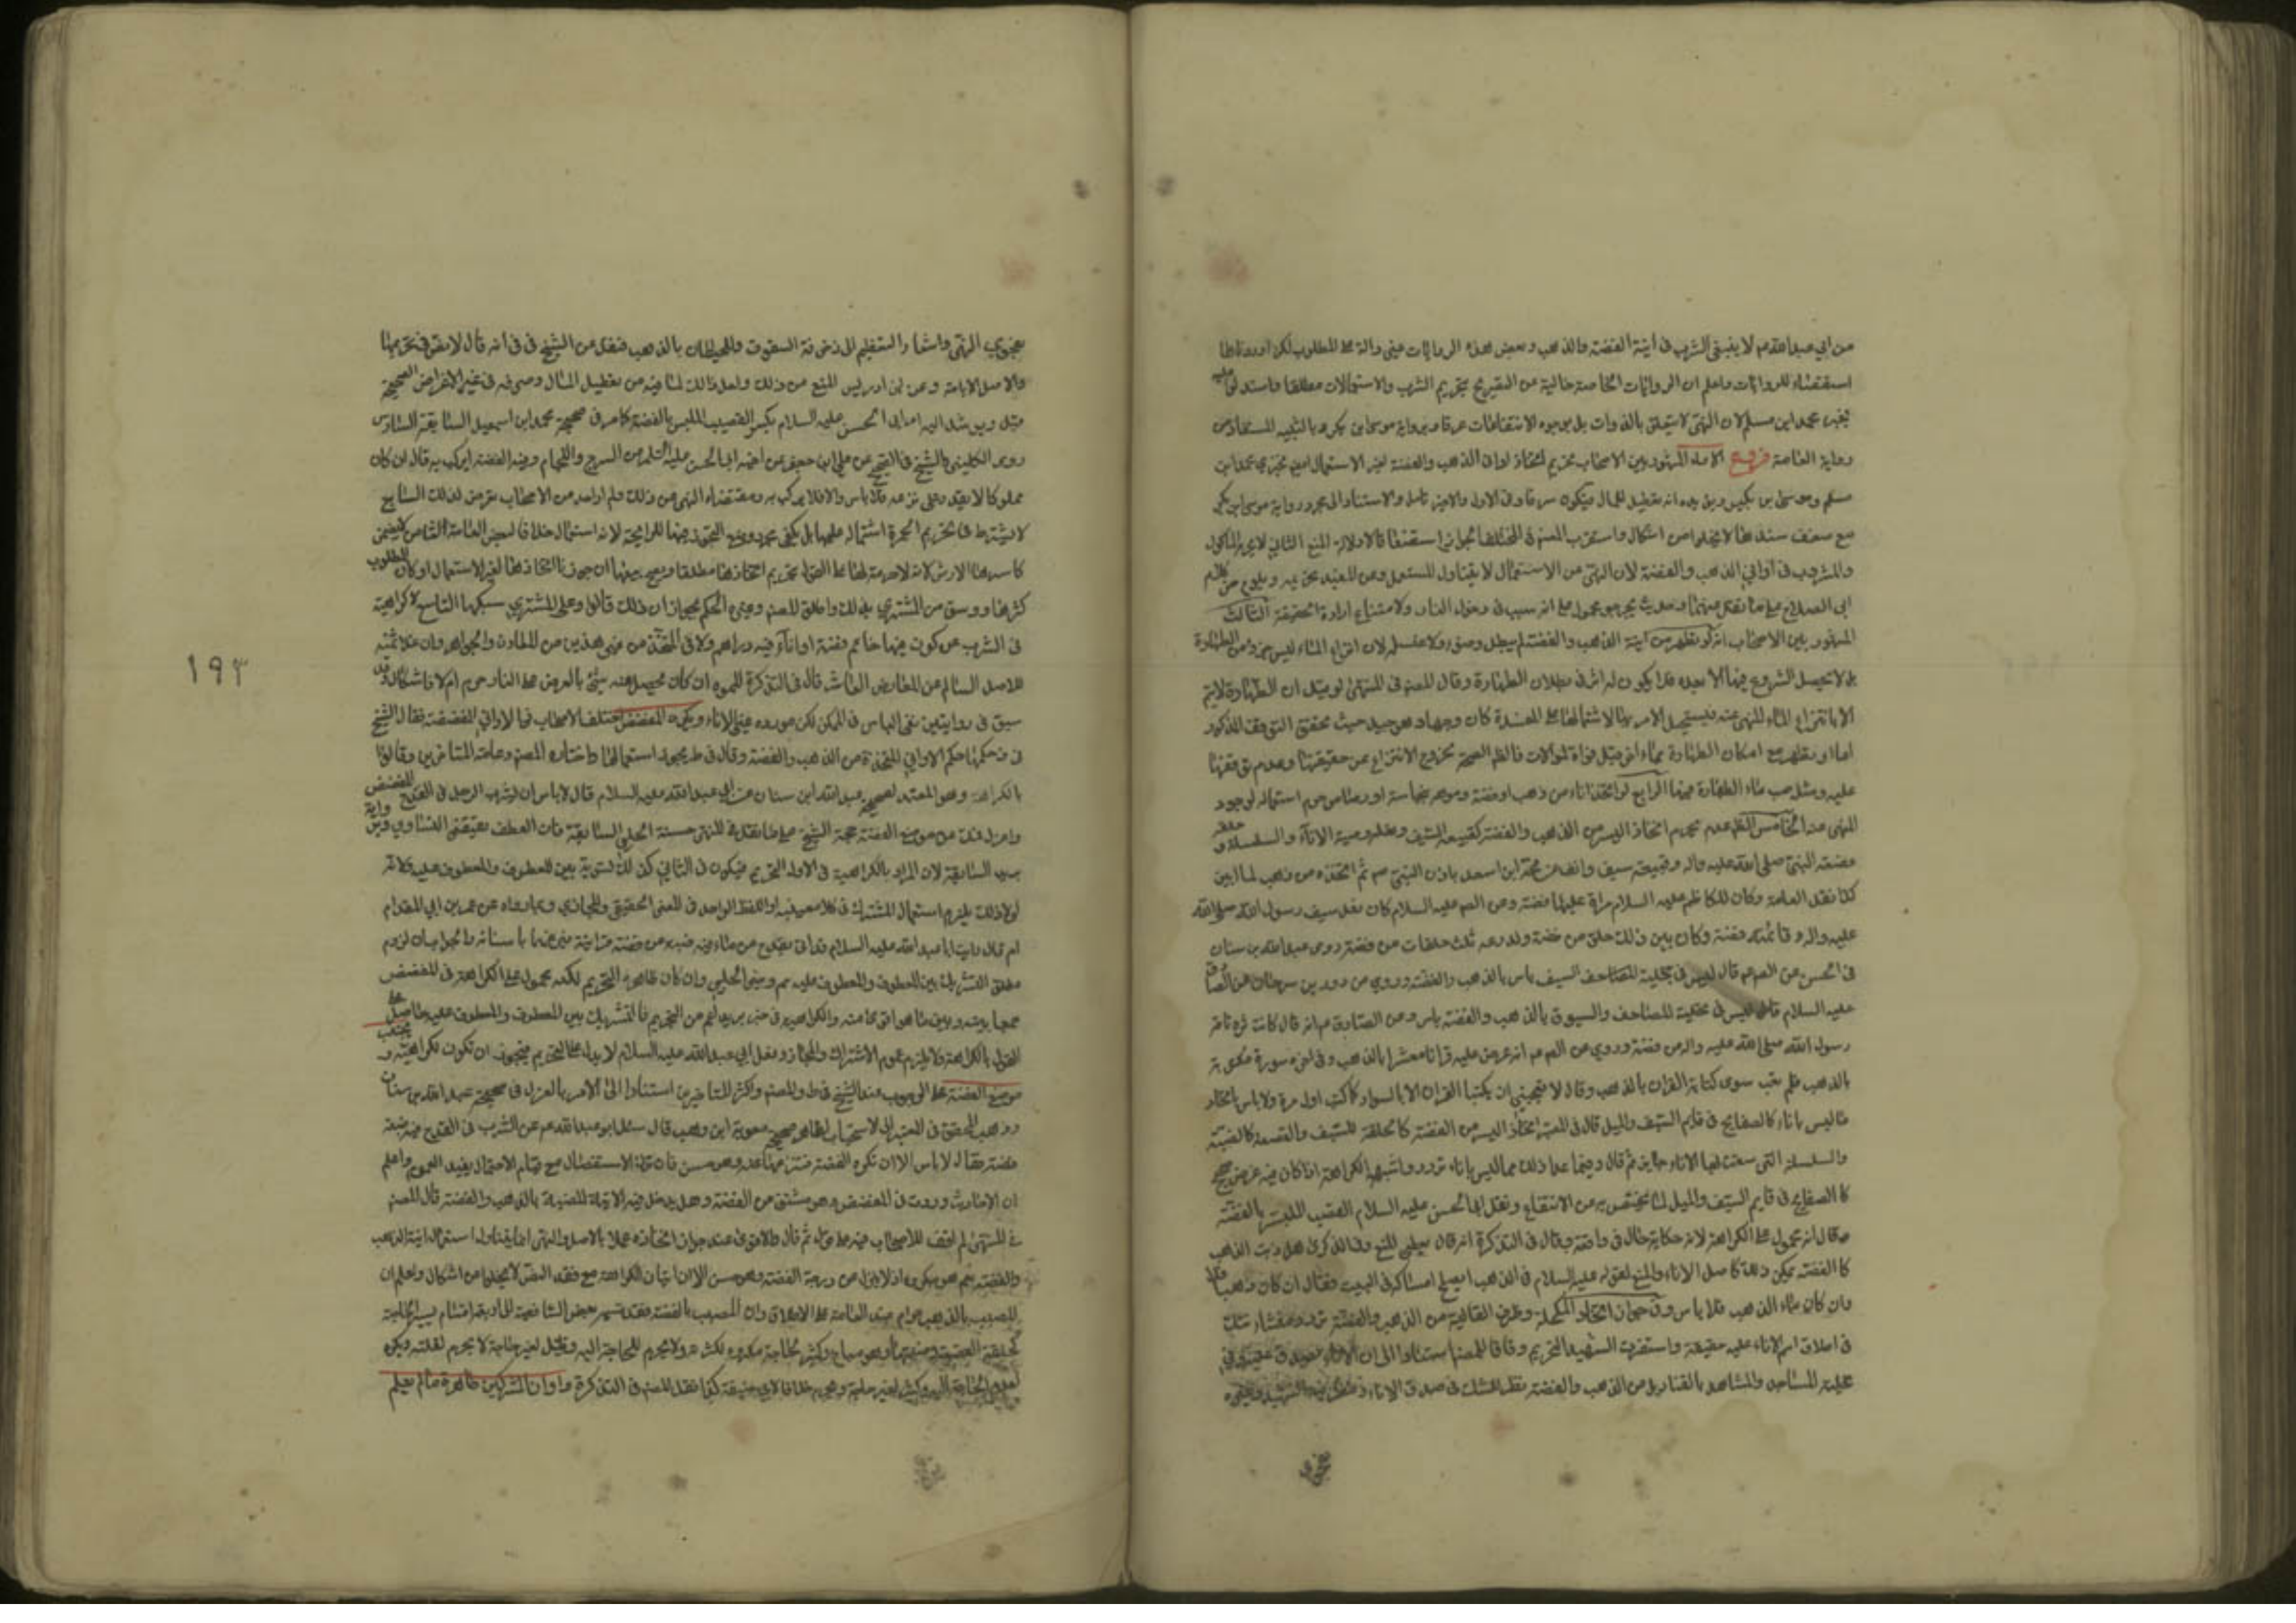 من ابي عبدالله عم لا ينبغي الشرب في انية الفضة والذهب وبعض هذه الروايات غير دالة على المطلوب لكن اوردناها
استقصاء للروايات واعلم ان الروايات الخاصة خالية عن التصريح بتحريم الشرب والاستعمالات مطلقا واستدلوا عليه
بخبر محمد ابن مسلم لان النهي لا يتعلق بالذوات بل بوجوه الانتفاعات عرفا وبرواية موسى ابن بكر وبالتنبيه المستفاد من
رواية العامة فروع الاول المشهور بين الاصحاب تحريم اتخاذ اواني الذهب والفضة لغير الاستعمال ايضا لخبري محمد ابن
مسلم وموسى بن بكر ويؤيده انه تعطيل للمال فيكون سرفا وفي الاول والاخير تامل والاستناد الى مجرد رواية موسى ابن بكر
مع ضعف سندها لا يخلو من اشكال واستقرب المصنف في المختلف الجواز استضعافا لادلة المنع الثاني لا يحرم الماكول
والمشروب في اواني الذهب والفضة لان النهي عن الاستعمال لا يتناول المستعمل وعن المفيد تحريمه ويلوح من كلام
ابي الصلاح على ما نقل عنهما وحديث يجرجر محمول على انه سبب في دخول النار ولامتناع ارادة الحقيقة الثالث
المشهور بين الاصحاب انه لو تطهر من انية الذهب والفضة لم يبطل وضوءه ولا غسله لان انتزاع الماء ليس جزء من الطهارة
بل لا يحصل الشروع فيها الا بعده فلا يكون له اثر في بطلان الطهارة وقال المصنف في المنتهى لو قيل ان الطهارة لا يتم
الا بانتزاع الماء المنهي عنه فيستحيل الامر بها لاشتمالها على المفسدة كان وجها وهو جيد حيث تحقق التوقف المذكور
اما لو تطهر مع امكان الطهارة بماء اخر قبل فوات الموالات فالظاهر الصحة لخروج الانتزاع عن حقيقتها وعدم توقفها
عليه ومثل صب ماء الطهارة فيها الرابع لو اتخذ اناء من ذهب او فضة وموهه بنحاس او رصاص حرم استعماله لوجود
النهي عنه الخامس الظاهر عدم تحريم اتخاذ اليسير من الذهب والفضة كقبيعة السيف ونعله وضبة الاناء والسلسلة و
قصعة النبي صلى الله عليه واله وقبيعة سيف وانف عرفجة ابن اسعد باذن النبي صم ثم اتخذه من ذهب لما انتن
كذا نقل العامة وكان للكاظم عليه السلام مراة عليها فضة وعن الصم عليه السلام كان نعل سيف رسول الله صلى الله
عليه واله وقائمته فضة وكان بين ذلك حلق من فضة ولدرعه ثلث حلقات من فضة روى عبدالله بن سنان
في الحسن عن الصم عم قال ليس في تحلية المصاحف السيف باس بالذهب والفضة وروي عن داود بن سرحان عن الصادق
عليه السلام قال ليس في تحلية المصاحف والسيوف بالذهب والفضة باس وعن الصادق عم انه قال كانت
رسول الله صلى الله عليه واله من فضة وروي عن الصم عم انه عرض عليه قرانا معشرا بالذهب وفي اخره سورة مكتوبة
بالذهب فلم يعب سوى كتابة القران بالذهب وقال لا يعجبني ان يكتب القران الا بالسواد كما كتب اول مرة ولا باس باتخاذ
ما ليس باناء كالصفايح في قايم السيف والميل قال في المعتبر اتخاذ اليسير من الفضة كالحلقة للسيف والقصعة كالضبة
والسلسلة التي سعت لها الاناء جايز ثم قال وفيما عدا ذلك مما ليس باناء تردد واشبهه الكراهة اذا كان فيه غرض صحيح
كالصفايح في قايم السيف والميل لما يختص به من الانتفاع ونقل ابا الحسن عليه السلام القضيب الملبس بالفضة
وقال انه محمول على الكراهة لانه حكاية حال في واقعة وقال في التذكرة انه قال بعلي المنع وفي الذكرى هل ذبت الذهب
كالفضة يمكن ذلك كاصل الاناء والمنع لقوله عليه السلام في الذهب ايصلح امساكه في البيت فقال ان كان ذهبا فلا
وان كان ماء الذهب فلا باس وفي جواز اتخاذ المكحلة وظرف الغالية من الذهب والفضة تردد ومنشاه شك
في اطلاق اسم الاناء عليه حقيقة واستقرب الشهيد التحريم وفاقا للمصنف استنادا الى ان الاناء
تحلية المساجد والمشاهد بالقناديل من الذهب والفضة نظر للشك في صدق الاناء
فحوى النهي واشعار التعظيم الى زخرفة السقوف والحيطان بالذهب فنقل عن الشيخ في ف انه قال لا نص في تحريمها
والاصل الاباحة وعن ابن ادريس المنع من ذلك ولعل ذلك لما فيه من تعطيل المال وصرفه في غير الاغراض الصحيحة
قيل ويرشد اليه امر ابي الحسن عليه السلام بكسر القضيب الملبس بالفضة كما مر في صحيحة محمد ابن اسمعيل السابقة السادس
روى الكليني والشيخ في الصحيح عن علي ابن جعفر عن اخيه ابي الحسن عليه السلم عن السرج واللجام وفيه الفضة ايركب به قال ان كان
مموها لا يقدر على نزعه فلا باس والا فلا يركب به ومقتضاه النهي عن ذلك ولم ار احد من الاصحاب تعرض لذلك السابع
لا يشترط في تحريم المجمرة اشتماله عليها بل يكفي مجرد وضع البخور فيها للرايحة لانه استعمال خلافا لبعض العامة الثامن لا يضمن
كاسرها الارش لانه لا حرمة لها على القول بتحريم اتخاذها مطلقا ويصح بيعها ان جوزنا اتخاذها لغير الاستعمال او كان المطلوب
كسرها ووثق من المشتري بذلك واطلق المصنف وغيره الحكم بجواز ان ذلك قالوا وعلى المشتري سبكها التاسع لا كراهية
في الشرب عن كوز فيها خاتم فضة او اناء فيه دراهم ولا في المتخذ من غير هذين من المعادن والجواهر وان غلا ثمنه
للاصل السالم عن المعارض العاشر قال في التذكرة المموه ان كان يحصل منه شيئ بالعرض على النار حرم ام لا فاشكال وقد
سبق في روايتين نفي الباس في الممكن لكن مورده غير الاناء ويكره المفضض اختلف الاصحاب في الاواني المفضضة فقال الشيخ
في ف حكمها حكم الاواني المتخذة من الذهب والفضة وقال في ط يجوز استعمالها واختاره المصنف وعامة المتاخرين وقالوا
بالكراهة وهو المعتمد لصحيحة عبدالله ابن سنان عن ابي عبدالله عليه السلام قال لا باس ان يشرب الرجل في القدح المفضض
واعزل فمك عن موضع الفضة حجة الشيخ على ما نقل في المنتهى حسنة الحلبي السابقة فان العطف يقتضي التساوي ورواية
بريد السابقة لان المراد بالكراهية في الاول التحريم فيكون في الثاني كذلك تسوية بين المعطوف والمعطوف عليه ولانه
لولا ذلك يلزم استعمال المشترك في كلا معنييه او اللفظ الواحد في المعنى الحقيقي والمجازي وبما رواه عن عمر بن ابي المقدام
انه قال رايت ابا عبدالله عليه السلام قد اتي بقدح من ماء فيه ضبة من فضة فرايته ينزعها باسنانه والجواب ان لزوم
مطلق التشريك بين المعطوف والمعطوف عليه مم وخبر الحلبي وان كان ظاهره التحريم لكنه محمول على الكراهة في المفضض
جمعا بينه وبين ما هو اقوى منه والكراهية في خبر بريد اعم من التحريم فالتشريك بين المعطوف والمعطوف عليه حاصل على
القول بالكراهة ولا يلزم عموم الاشتراك والمجاز وفعل ابي عبدالله عليه السلام لا يدل على التحريم فيجوز ان تكون لكراهيته ويجتنب
موضع الفضة على الوجوب عند الشيخ في ط والمصنف واكثر المتاخرين استنادا الى الامر بالعزل في صحيحة عبدالله بن سنان
وذهب المحقق في المعتبر الى الاستحباب لظاهر صحيحة معوية ابن وهب قال سئل ابو عبدالله عم عن الشرب في القدح فيه ضبة
فضة فقال لا باس الا ان تكره الفضة فتنزعها عنه وهو حسن فان ترك الاستفصال مع قيام الاحتمال يفيد العموم واعلم
ان الاحاديث وردت في المفضض وهو مشتق من الفضة وهل يدخل فيه الانية المضببة بالذهب والفضة قال المصنف
في المنتهى لم اقف للاصحاب فيه على قول ثم قال والاقوى عندي جواز اتخاذه عملا بالاصل والنهي انما يتناول استعمال انية الذهب
والفضة نعم هو مكروه اذ لا ينزل عن درجة الفضة وهو حسن الا ان اثبات الكراهة مع فقد النص لا يخلو من اشكال واعلم ان
المضبب بالذهب حرام عند العامة على الاطلاق وان المضبب بالفضة فقد قسمه بعض الشافعية الى اربعة اقسام يسير لحاجة
كحلقة القصعة وضبتها وهو مباح وكثير لحاجة مكروه لكثرته ولا يحرم للحاجة اليه وقليل لغير حاجة لا يحرم لقلته ويكره
لعدم الحاجة اليه وكثير لغير حاجة وهو محرم خلافا لابي حنيفة كذا نقل المصنف في التذكرة واواني المشركين طاهرة ما لم يعلم
١٩٣